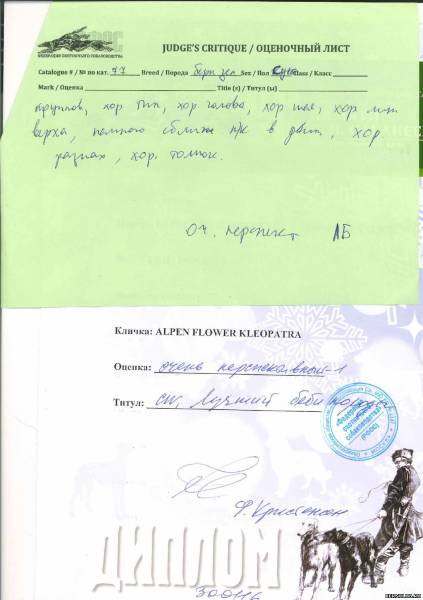 ФЕДЕРАЦИЯ ОХОТНИЧЬЕГО СОБАКОВОДСТВА
JUDGE'S CRITIQUE / ОЦЕНОЧНЫЙ ЛИСТ
Catalogue # / № по кат. 77 Breed / Порода берн зен Sex / Пол сука Class / Класс
Mark / Оценка Title (s) / Титул (ы)
крупнов, хор тип, хор голова, хор шея, хор. лин.
верха, немного сближ в движ, хор.
размах, хор. толчок.
оч. перспект ЛБ
Кличка: ALPEN FLOWER KLEOPATRA
Оценка: очень перспективный-1
Титул: Лучший беби породы
ДИПЛОМ